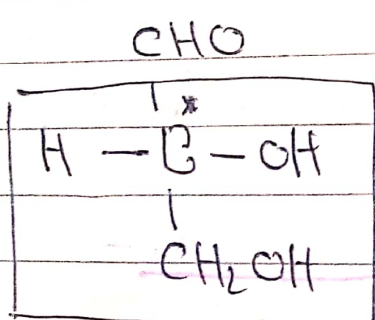 CHO
*
H — C — OH
CH₂OH